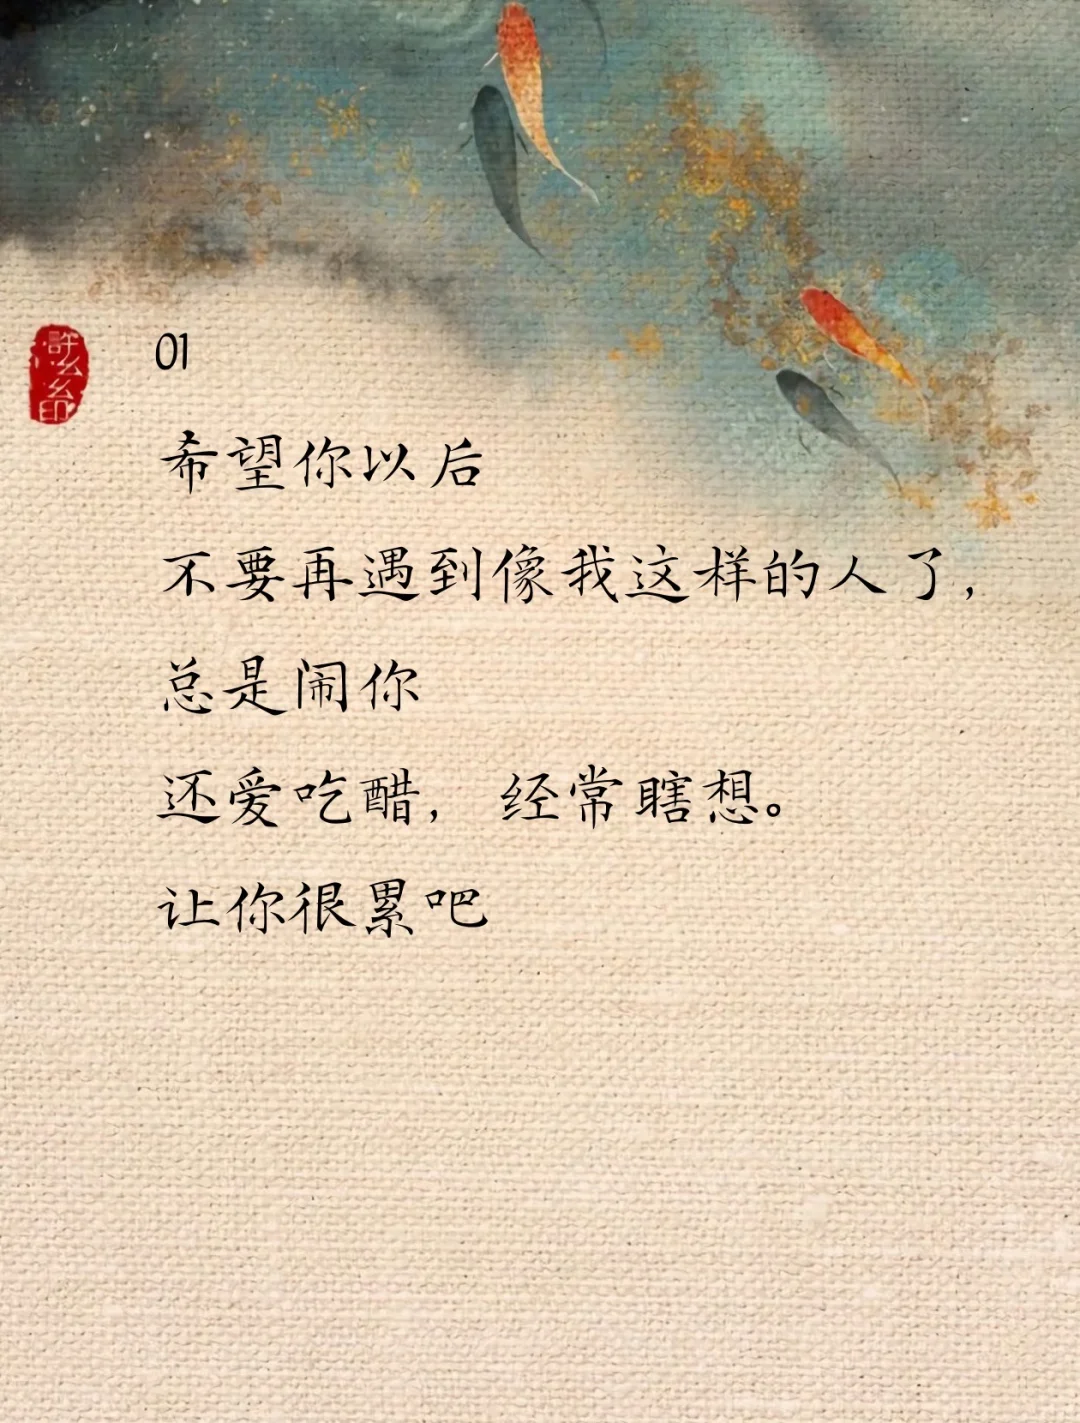 01
希望你以后
不要再遇到像我这样的人了，
总是闹你
还爱吃醋， 经常瞎想。
让你很累吧
許么么印